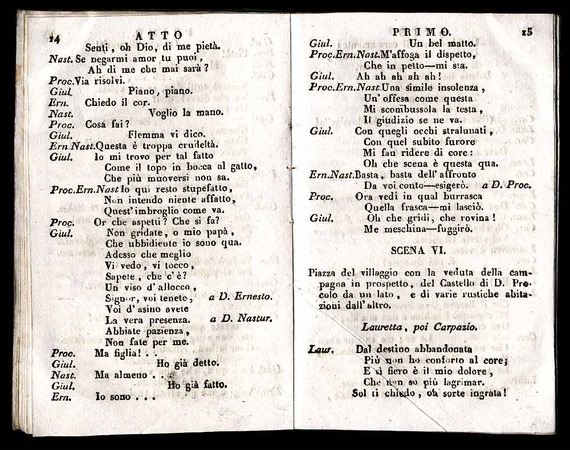 14 ATTO
Senti, oh Dio, di me pietà.
Nast. Se negarmi amor tu puoi,
Ah di me che mai sarà?
Proc. Via risolvi.
Giul. Piano, piano.
Ern. Chiedo il cor.
Nast. Voglio la mano.
Proc. Cosa fai?
Giul. Flemma vi dico.
Ern.Nast. Questa è troppa crudeltà.
Giul. Io mi trovo per tal fatto
Come il topo in bocca al gatto,
Che più muoversi non sa.
Proc.Ern.Nast. Io qui resto stupefatto,
Non intendo niente affatto,
Quest'imbroglio come va.
Proc. Or che aspetti? Che si fa?
Giul. Non gridate, o mio papà,
Che ubbidiente io sono qua.
Adesso che meglio
Vi vedo, vi tocco,
Sapete, che c'è?
Un viso d'allocco,
Signor, voi tenete, a D. Ernesto.
Voi d'asino avete
La vera presenza. a D. Nastur.
Abbiate pazienza,
Non fate per me.
Proc. Ma figlia! . .
Giul. Ho già detto.
Nast. Ma almeno . . .
Giul. Ho già fatto.
Ern. Io sono . . .
PRIMO. 15
Giul. Un bel matto.
Proc.Ern.Nast. M'affoga il dispetto,
Che in petto—mi sta.
Giul. Ah ah ah ah ah!
Proc.Ern.Nast. Una simile insolenza,
Un'offesa come questa
Mi scombussola la testa,
Il giudizio se ne va.
Giul. Con quegli occhi stralunati,
Con quel subito furore
Mi fan ridere di core:
Oh che scena è questa qua.
Ern.Nast. Basta, basta dell'affronto
Da voi conto—esigerò. a D. Proc.
Proc. Ora vedi in qual burrasca
Quella frasca—mi lasciò.
Giul. Oh che gridi, che rovina!
Me meschina—fuggirò.
SCENA VI.
Piazza del villaggio con la veduta della cam-
pagna in prospetto, del Castello di D. Pro-
colo da un lato, e di varie rustiche abita-
zioni dall'altro.
Lauretta, poi Carpazio.
Laur. Dal destino abbandonata
Più non ho conforto al core;
E sì fiero è il mio dolore,
Che non so più lagrimar.
Sol ti chiedo, oh sorte ingrata!